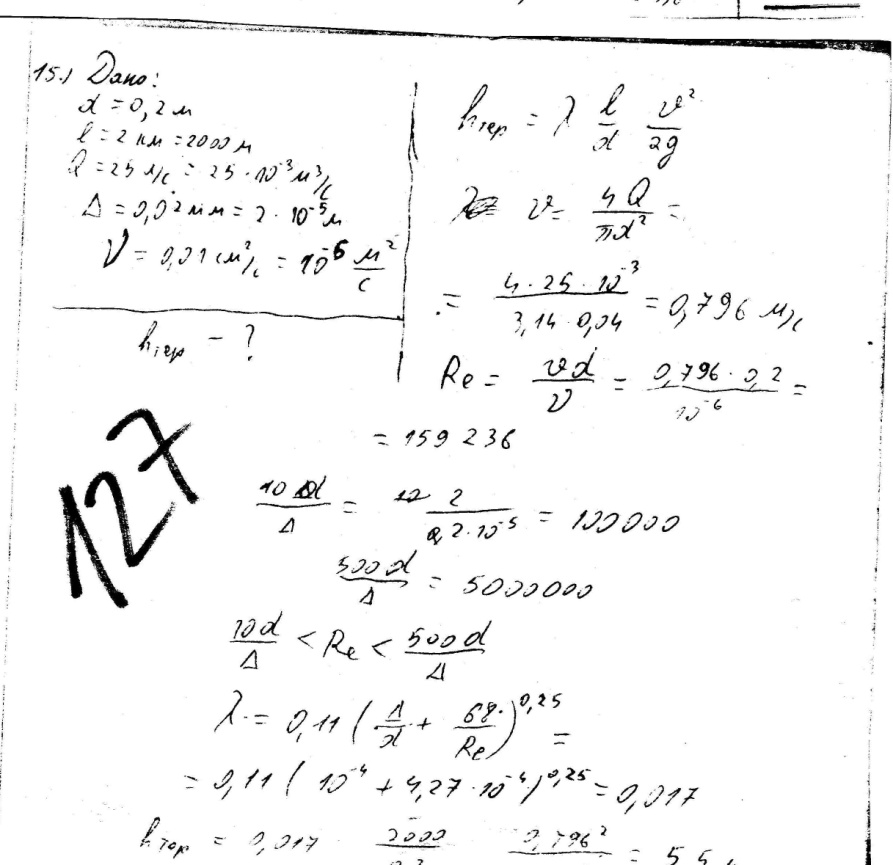 15.1 Дано:
d = 0,2 м
l = 2 км = 2000 м
Q = 25 л/с = 25 · 10⁻³ м³/с
Δ = 0,02 мм = 2 · 10⁻⁵ м
ν = 0,01 см²/с = 10⁻⁶ м²/с
hтер - ?
hтер = λ l/d v²/2g
v = 4Q/πd² =
= 4 · 25 · 10⁻³/3,14 · 0,04 = 0,796 м/с
Re = vd/ν = 0,796 · 0,2/10⁻⁶ =
= 159 236
127
10 d/Δ = 2/2 · 10⁻⁵ = 100000
500 d/Δ = 5000000
10d/Δ < Re < 500d/Δ
λ = 0,11 (Δ/d + 68/Re)^0,25 =
= 0,11 (10⁻⁴ + 4,27 · 10⁻⁴)^0,25 = 0,017
hтер = 0,017 2000 0,796² =